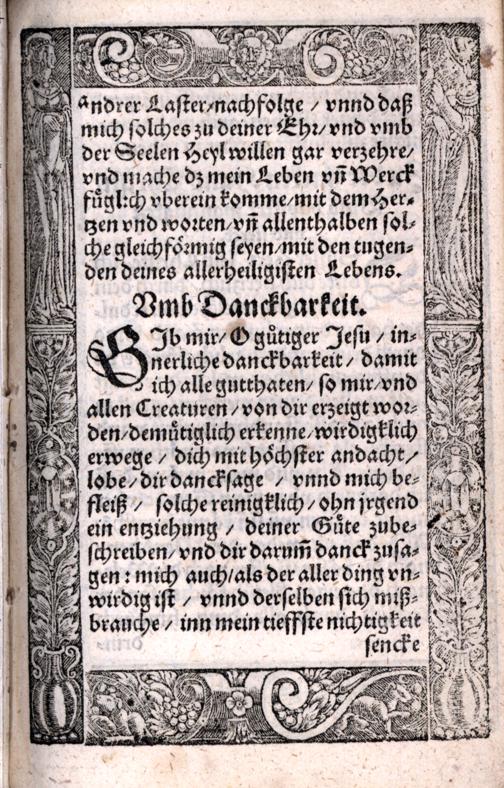 andrer Laster/nachfolge / vnnd daß
mich solches zu deiner Ehr/vnd vmb
der Seelen Heyl willen gar verzehre/
vnd mache dz mein Leben vñ Werck
fuͤglich vberein komme/mit dem Her-
tzen vnd worten/vñ allenthalben sol-
che gleichfoͤrmig seyen/mit den tugen-
den deines allerheiligisten Lebens.
Vmb Danckbarkeit.
GIb mir/ O guͤtiger Jesu / in-
nerliche danckbarkeit / damit
ich alle gutthaten/ so mir/vnd
allen Creaturen / von dir erzeigt wor-
den/demuͤtiglich erkenne/wirdigklich
erwege / dich mit hoͤchster andacht/
lobe/dir dancksage / vnnd mich be-
fleiß / solche reinigklich/ ohn jrgend
ein entziehung / deiner Guͤte zube-
schreiben/ vnd dir darum̃ danck zusa-
gen: mich auch/als der aller ding vn-
wirdig ist / vnnd derselben sich miß-
brauche / inn mein tieffste nichtigkeit
sencke